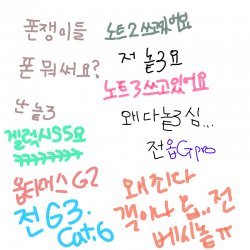 폰쟁이들
폰 뭐써요?
난 놑3
겔럭시S5요
옵티머스 G2
전 G3.
Cat.6
노트2 쓰고있어요
저 놑3요
노트3 쓰고있어요
왜 다 놑3 심...
전 옵G pro
왜 죄다
갤이나 옵.. 전
베시놑ㅠ